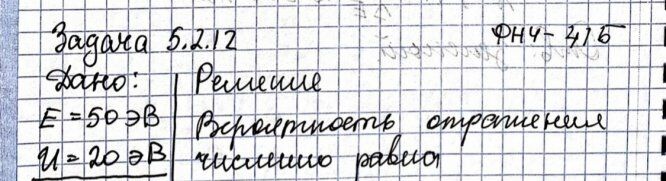 Задача 5.2.12 ФНЧ-41Б
Дано: Решение
E = 50 эВ Вероятность отражения
U = 20 эВ численно равна